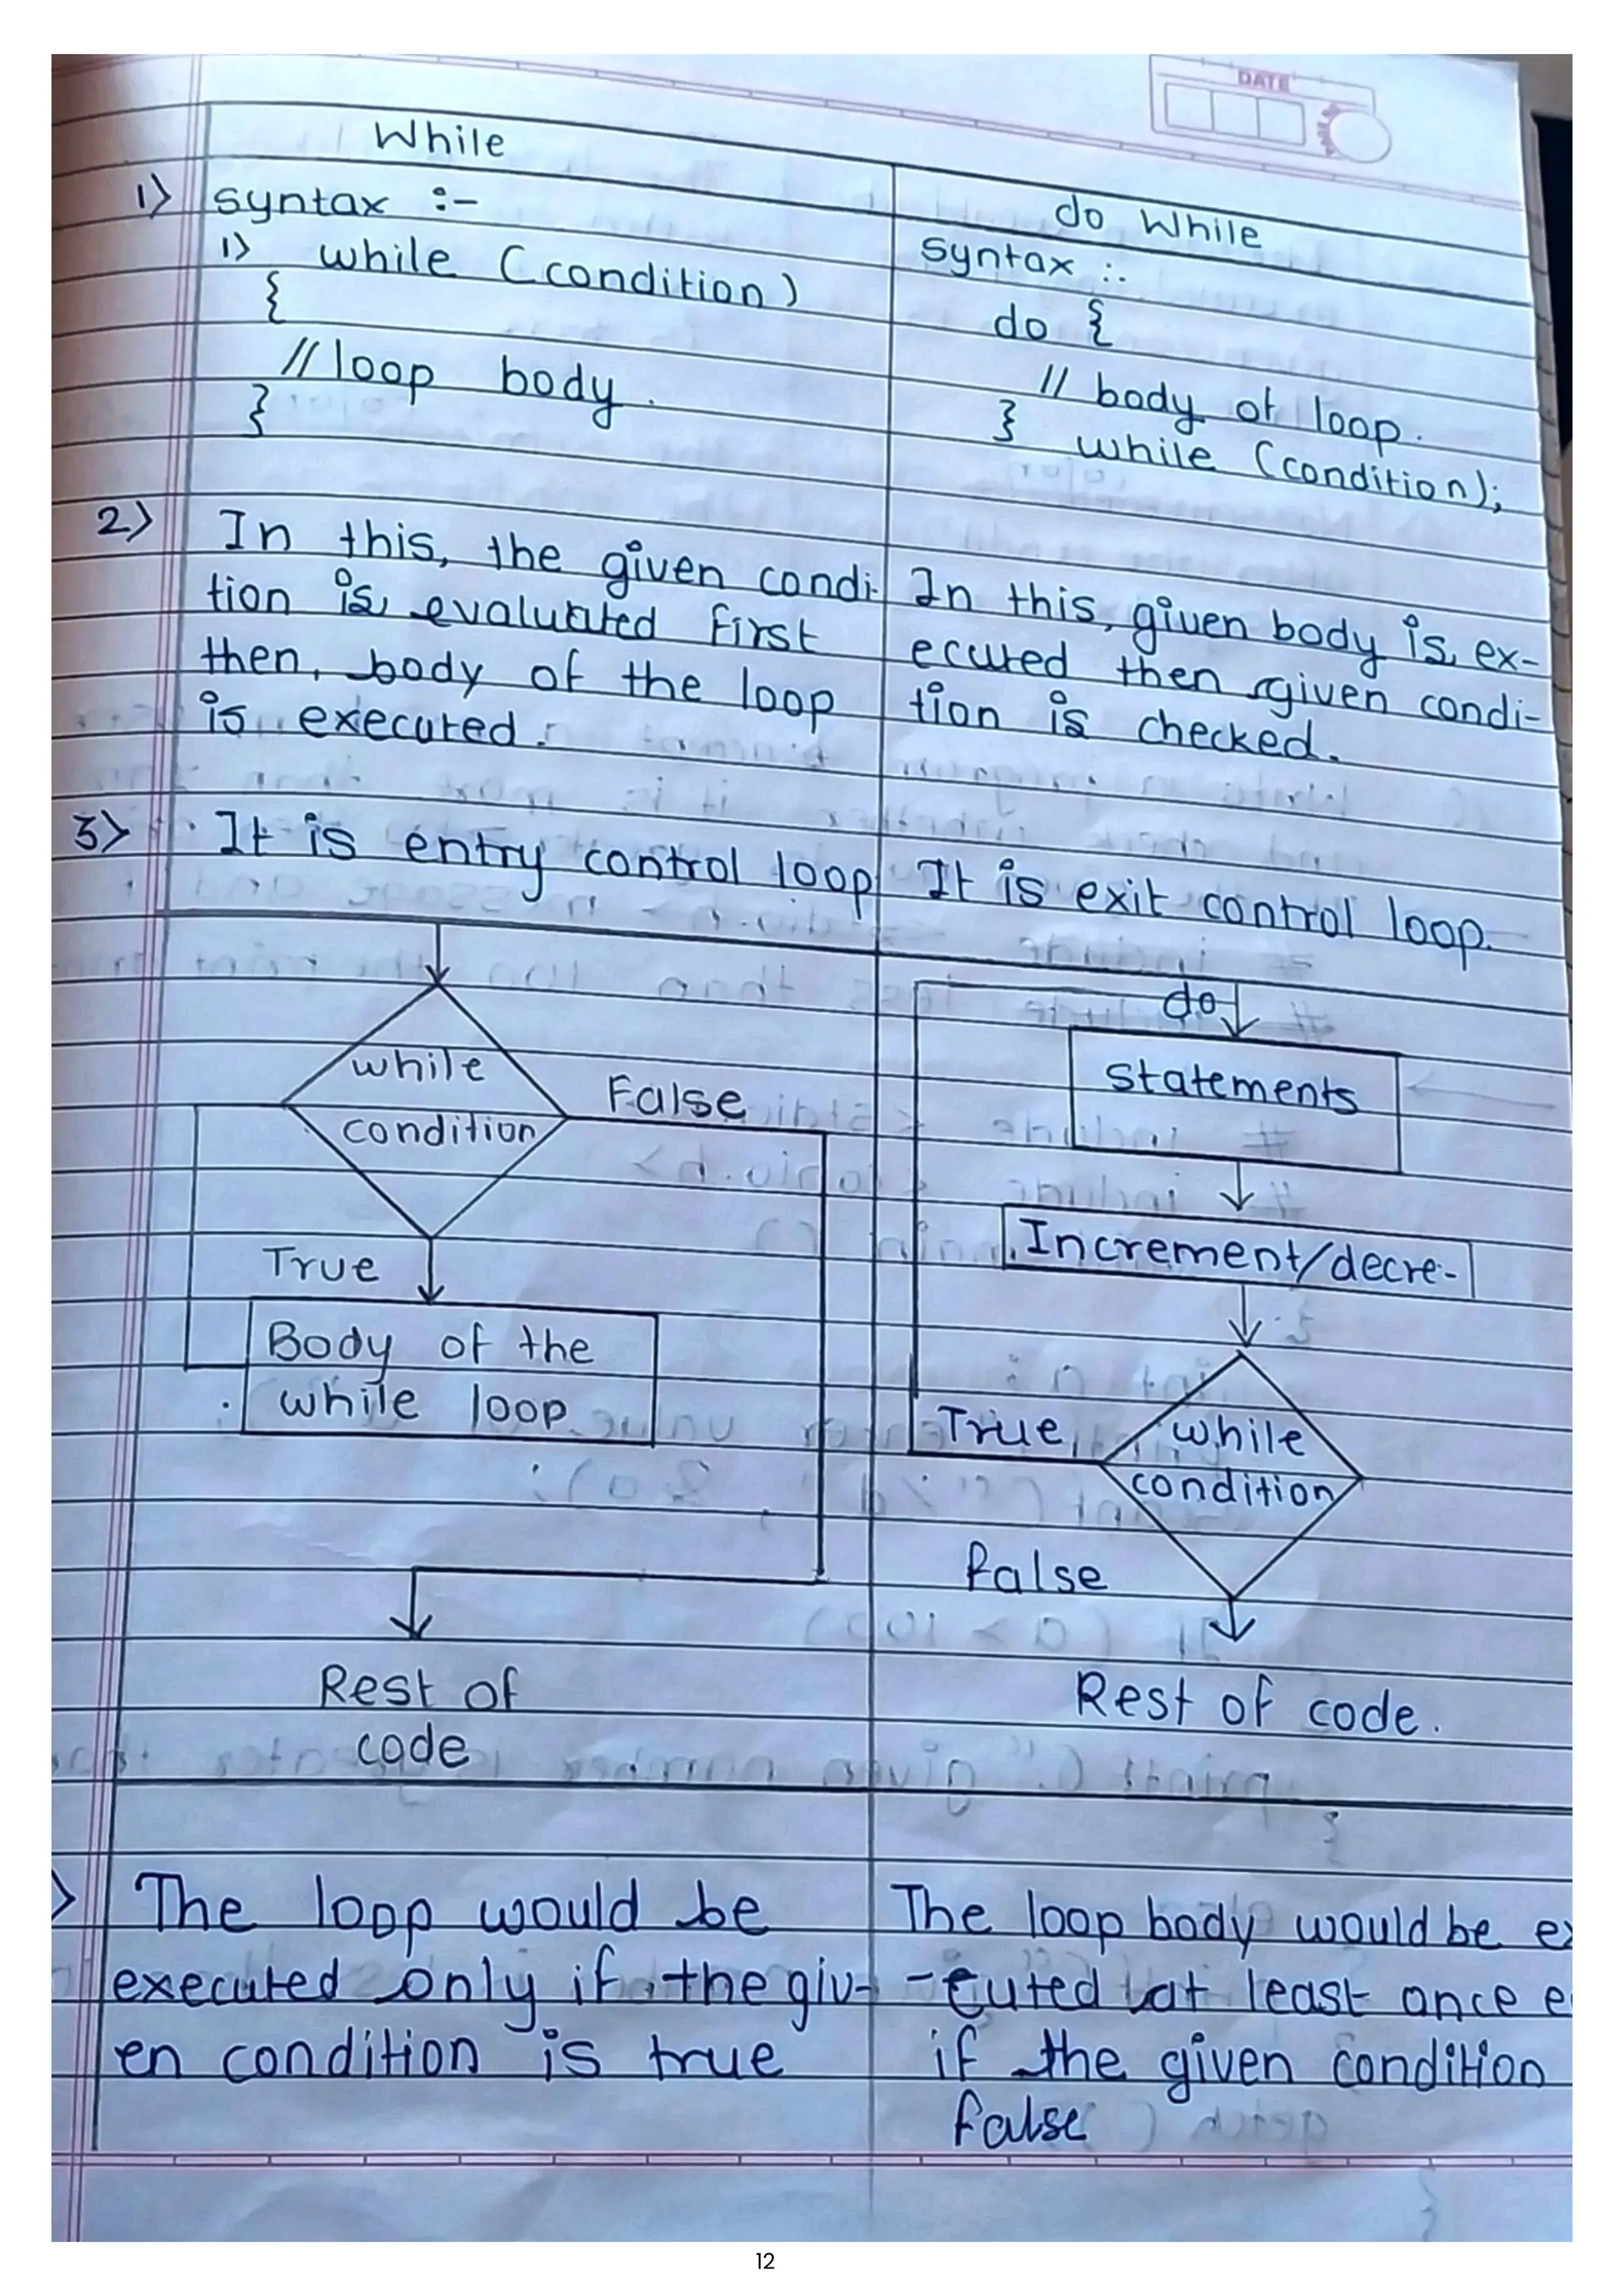 DATE
While
1) syntax :-
1) while (condition)
{
// loop body.
}
do While
syntax :-
do {
// body of loop.
} while (condition);
2) In this, the given condi-
tion is evaluated first
then, body of the loop
is executed.
In this, given body is ex-
ecuted then given condi-
tion is checked.
3) It is entry control loop
It is exit control loop.
while
condition
False
True
Body of the
while loop
Rest of
code
do
statements
Increment/decre-
True
while
condition
false
Rest of code.
) The loop would be
executed only if the giv-
en condition is true
The loop body would be ex
-cuted at least once e
if the given condition
false
12